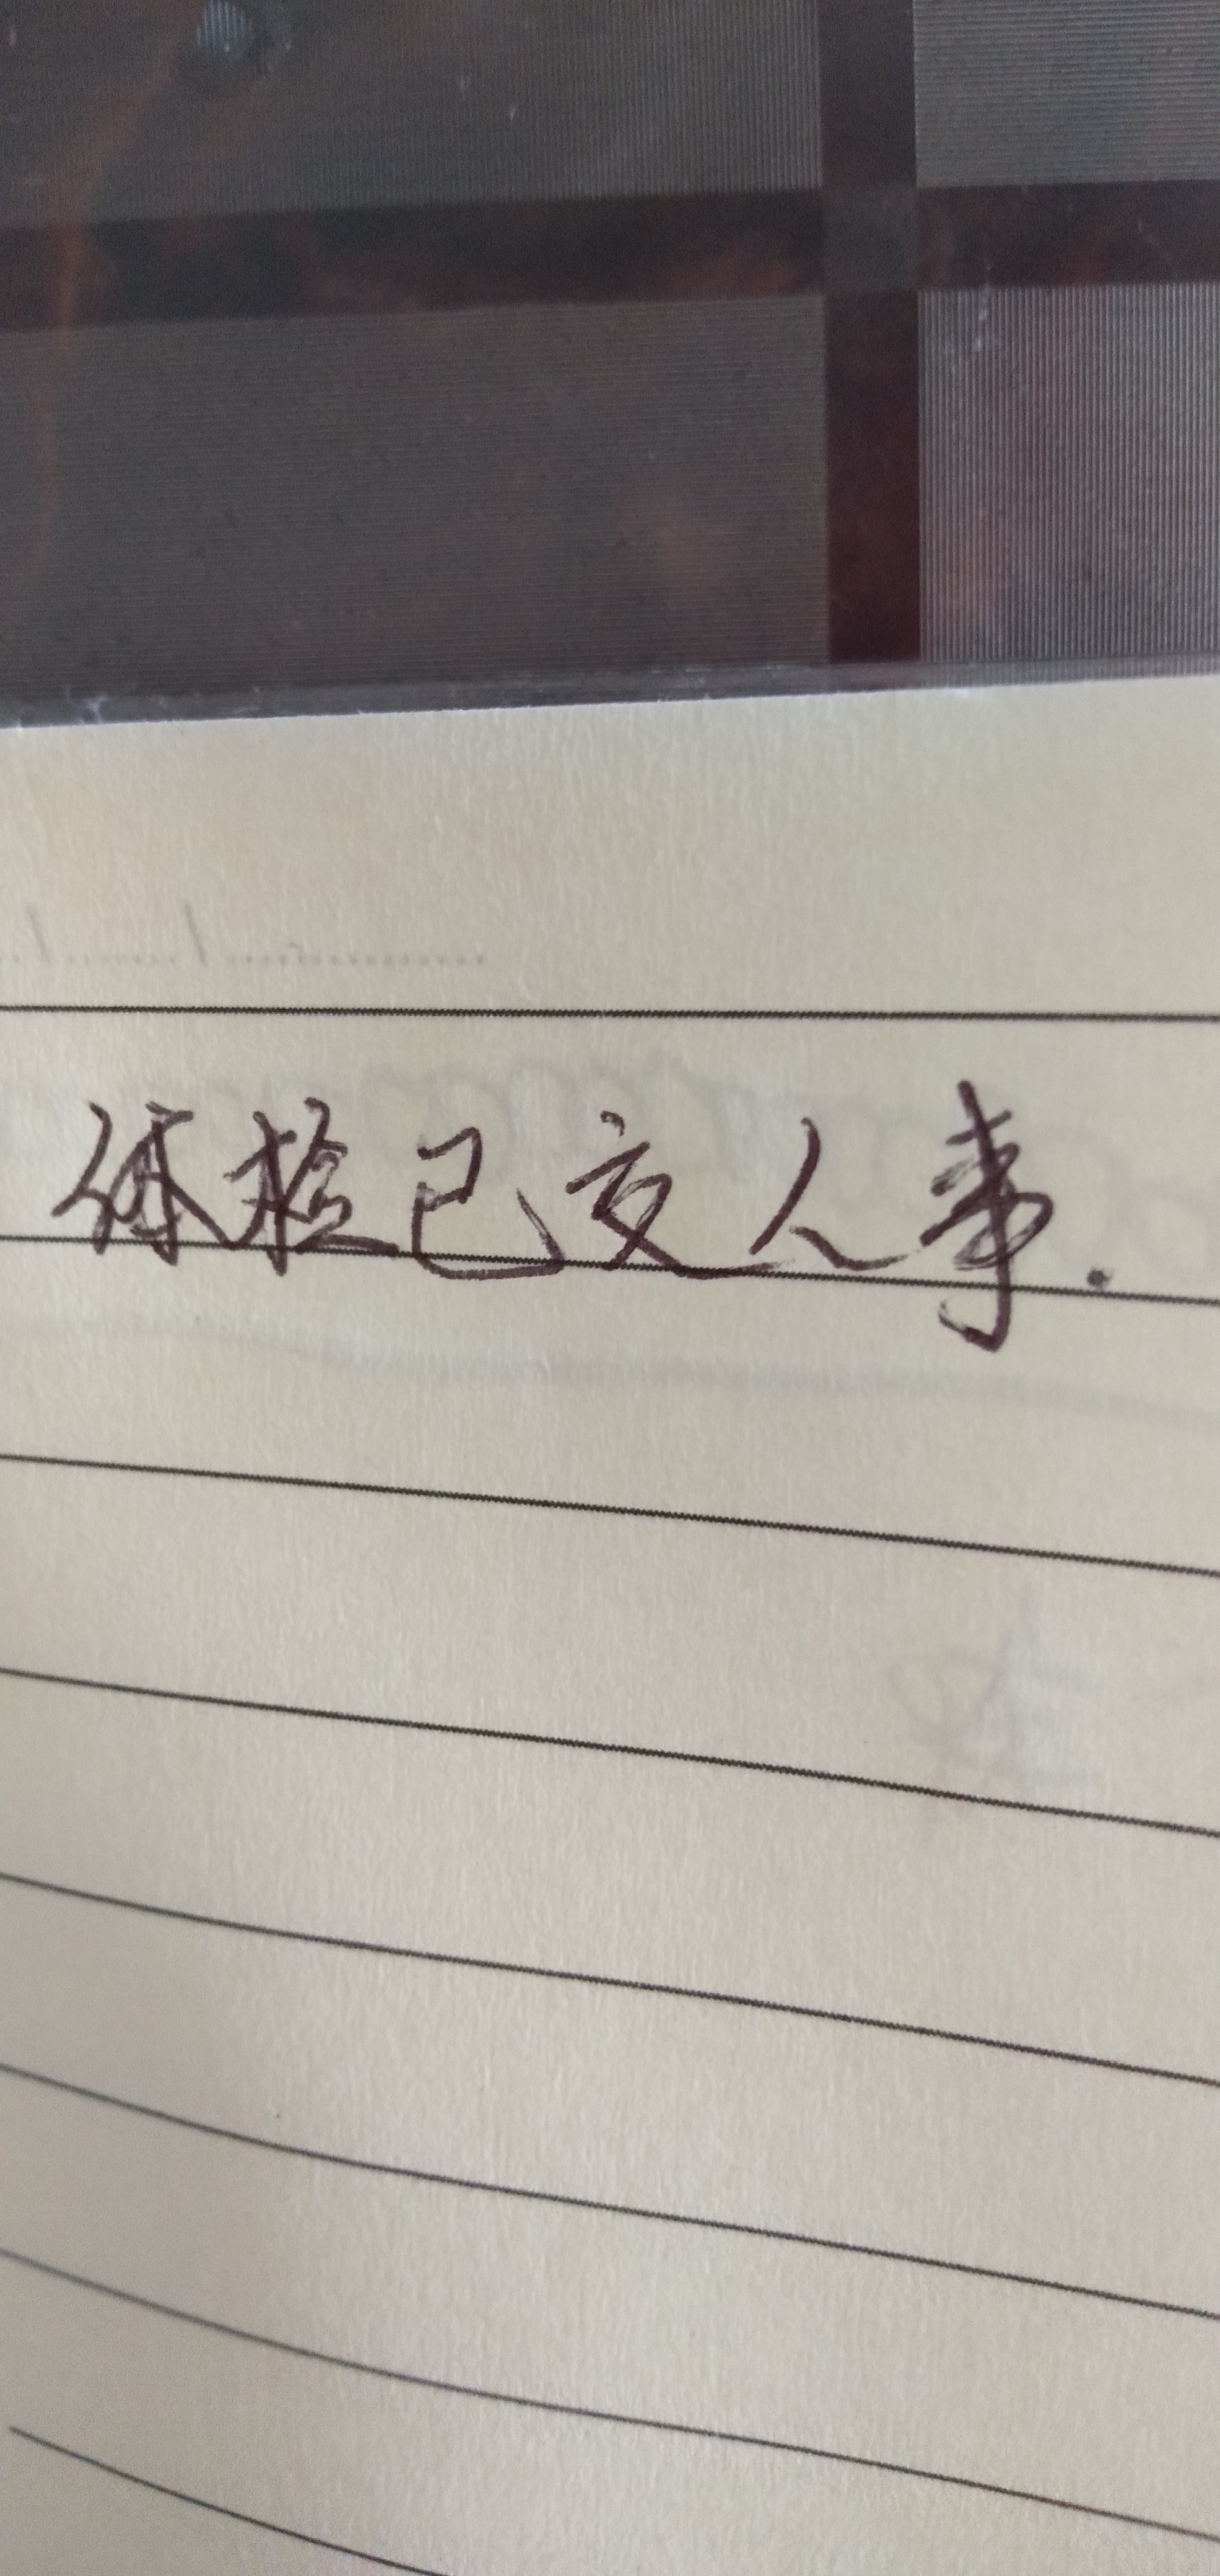 体检已交人事.